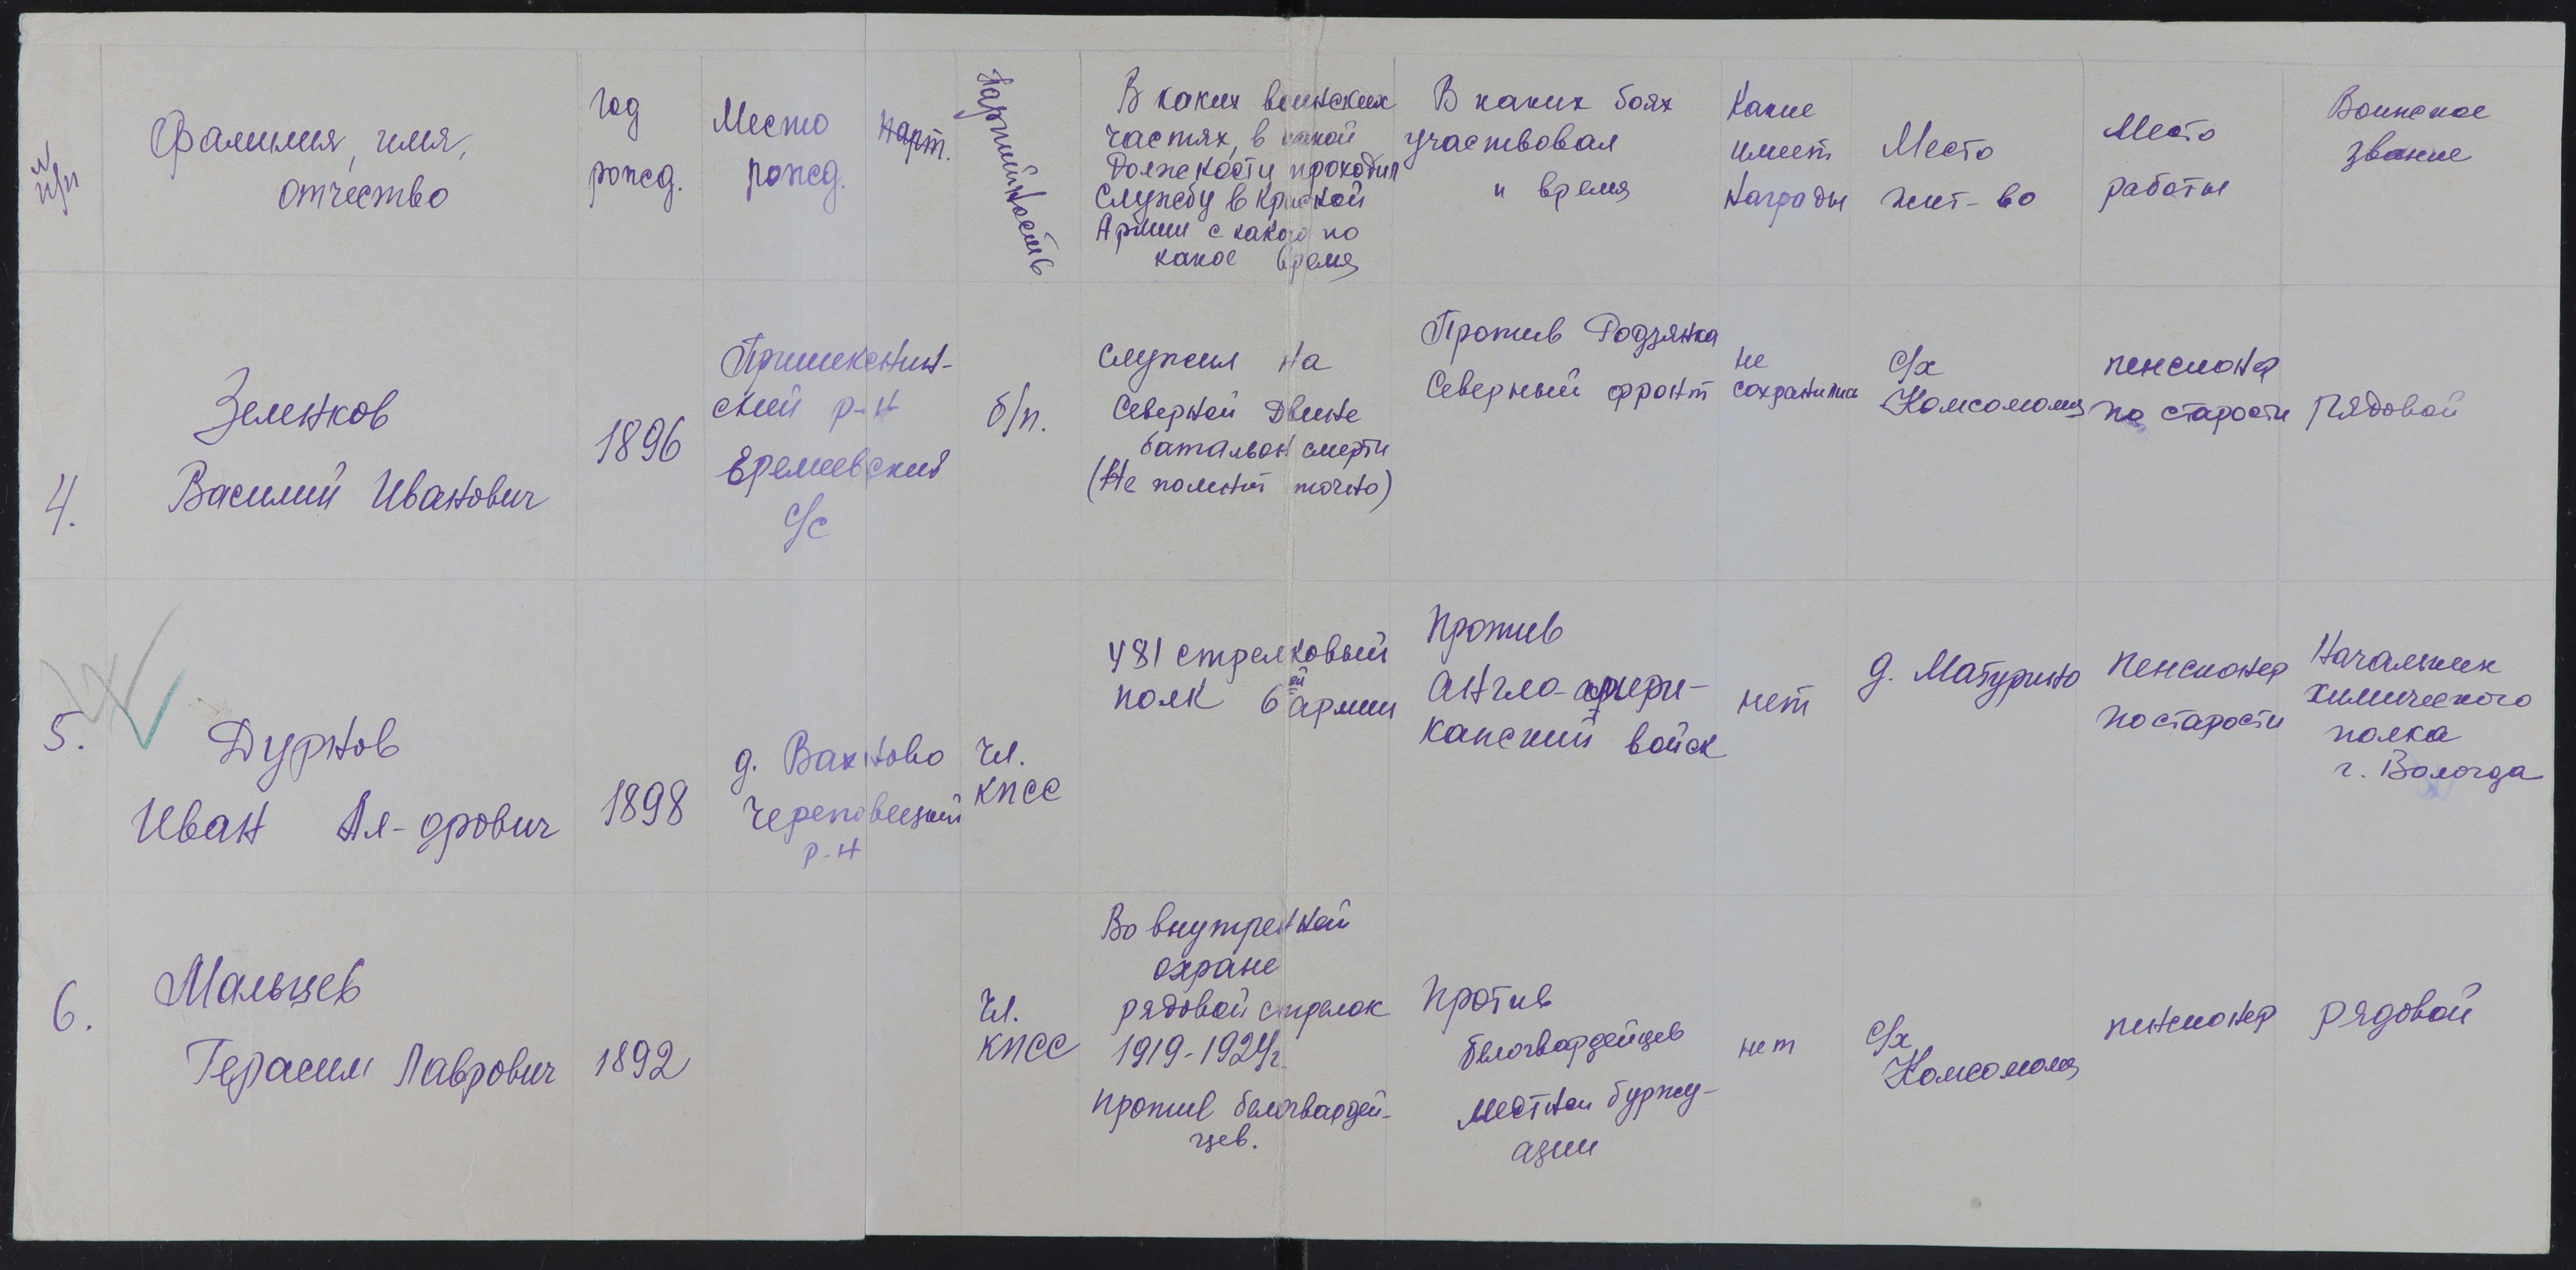 № п/п
Фамилия, имя,
отчество
год
рожд.
Место
рожд.
парт.
партийность
В каких воинских
частях, в какой
должности проходил
службу в Красной
Армии с какого по
какое время
В каких боях
участвовал
и время
Какие
имеет
награды
Место
жит-во
Место
работы
Воинское
звание
4.
Зеленков
Василий Иванович
1896
Пришекснин-
ский р-н
Еремеевский
с/с
б/п.
Служил на
Северной Двине
батальон смерти
(Не помнит точно)
Против Родзянка
Северный фронт
не
сохранились
с/х
Комсомолец
пенсионер
по старости
Рядовой
5.
Дурнов
Иван Ал-дрович
1898
д. Вахново
Череповецкий
р-н
Чл.
КПСС
481 стрелковый
полк 6ой армии
Против
Англо-амери-
канский войск
нет
д. Матурино
пенсионер
по старости
Начальник
химического
полка
г. Вологда
6.
Мальцев
Герасим Лаврович
1892
Чл.
КПСС
Во внутренной
охране
рядовой стрелок
1919-1924г.
против белогвардей-
цев.
Против
белогвардейцев
местной буржу-
азии
нет
с/х
Комсомолец
пенсионер
рядовой